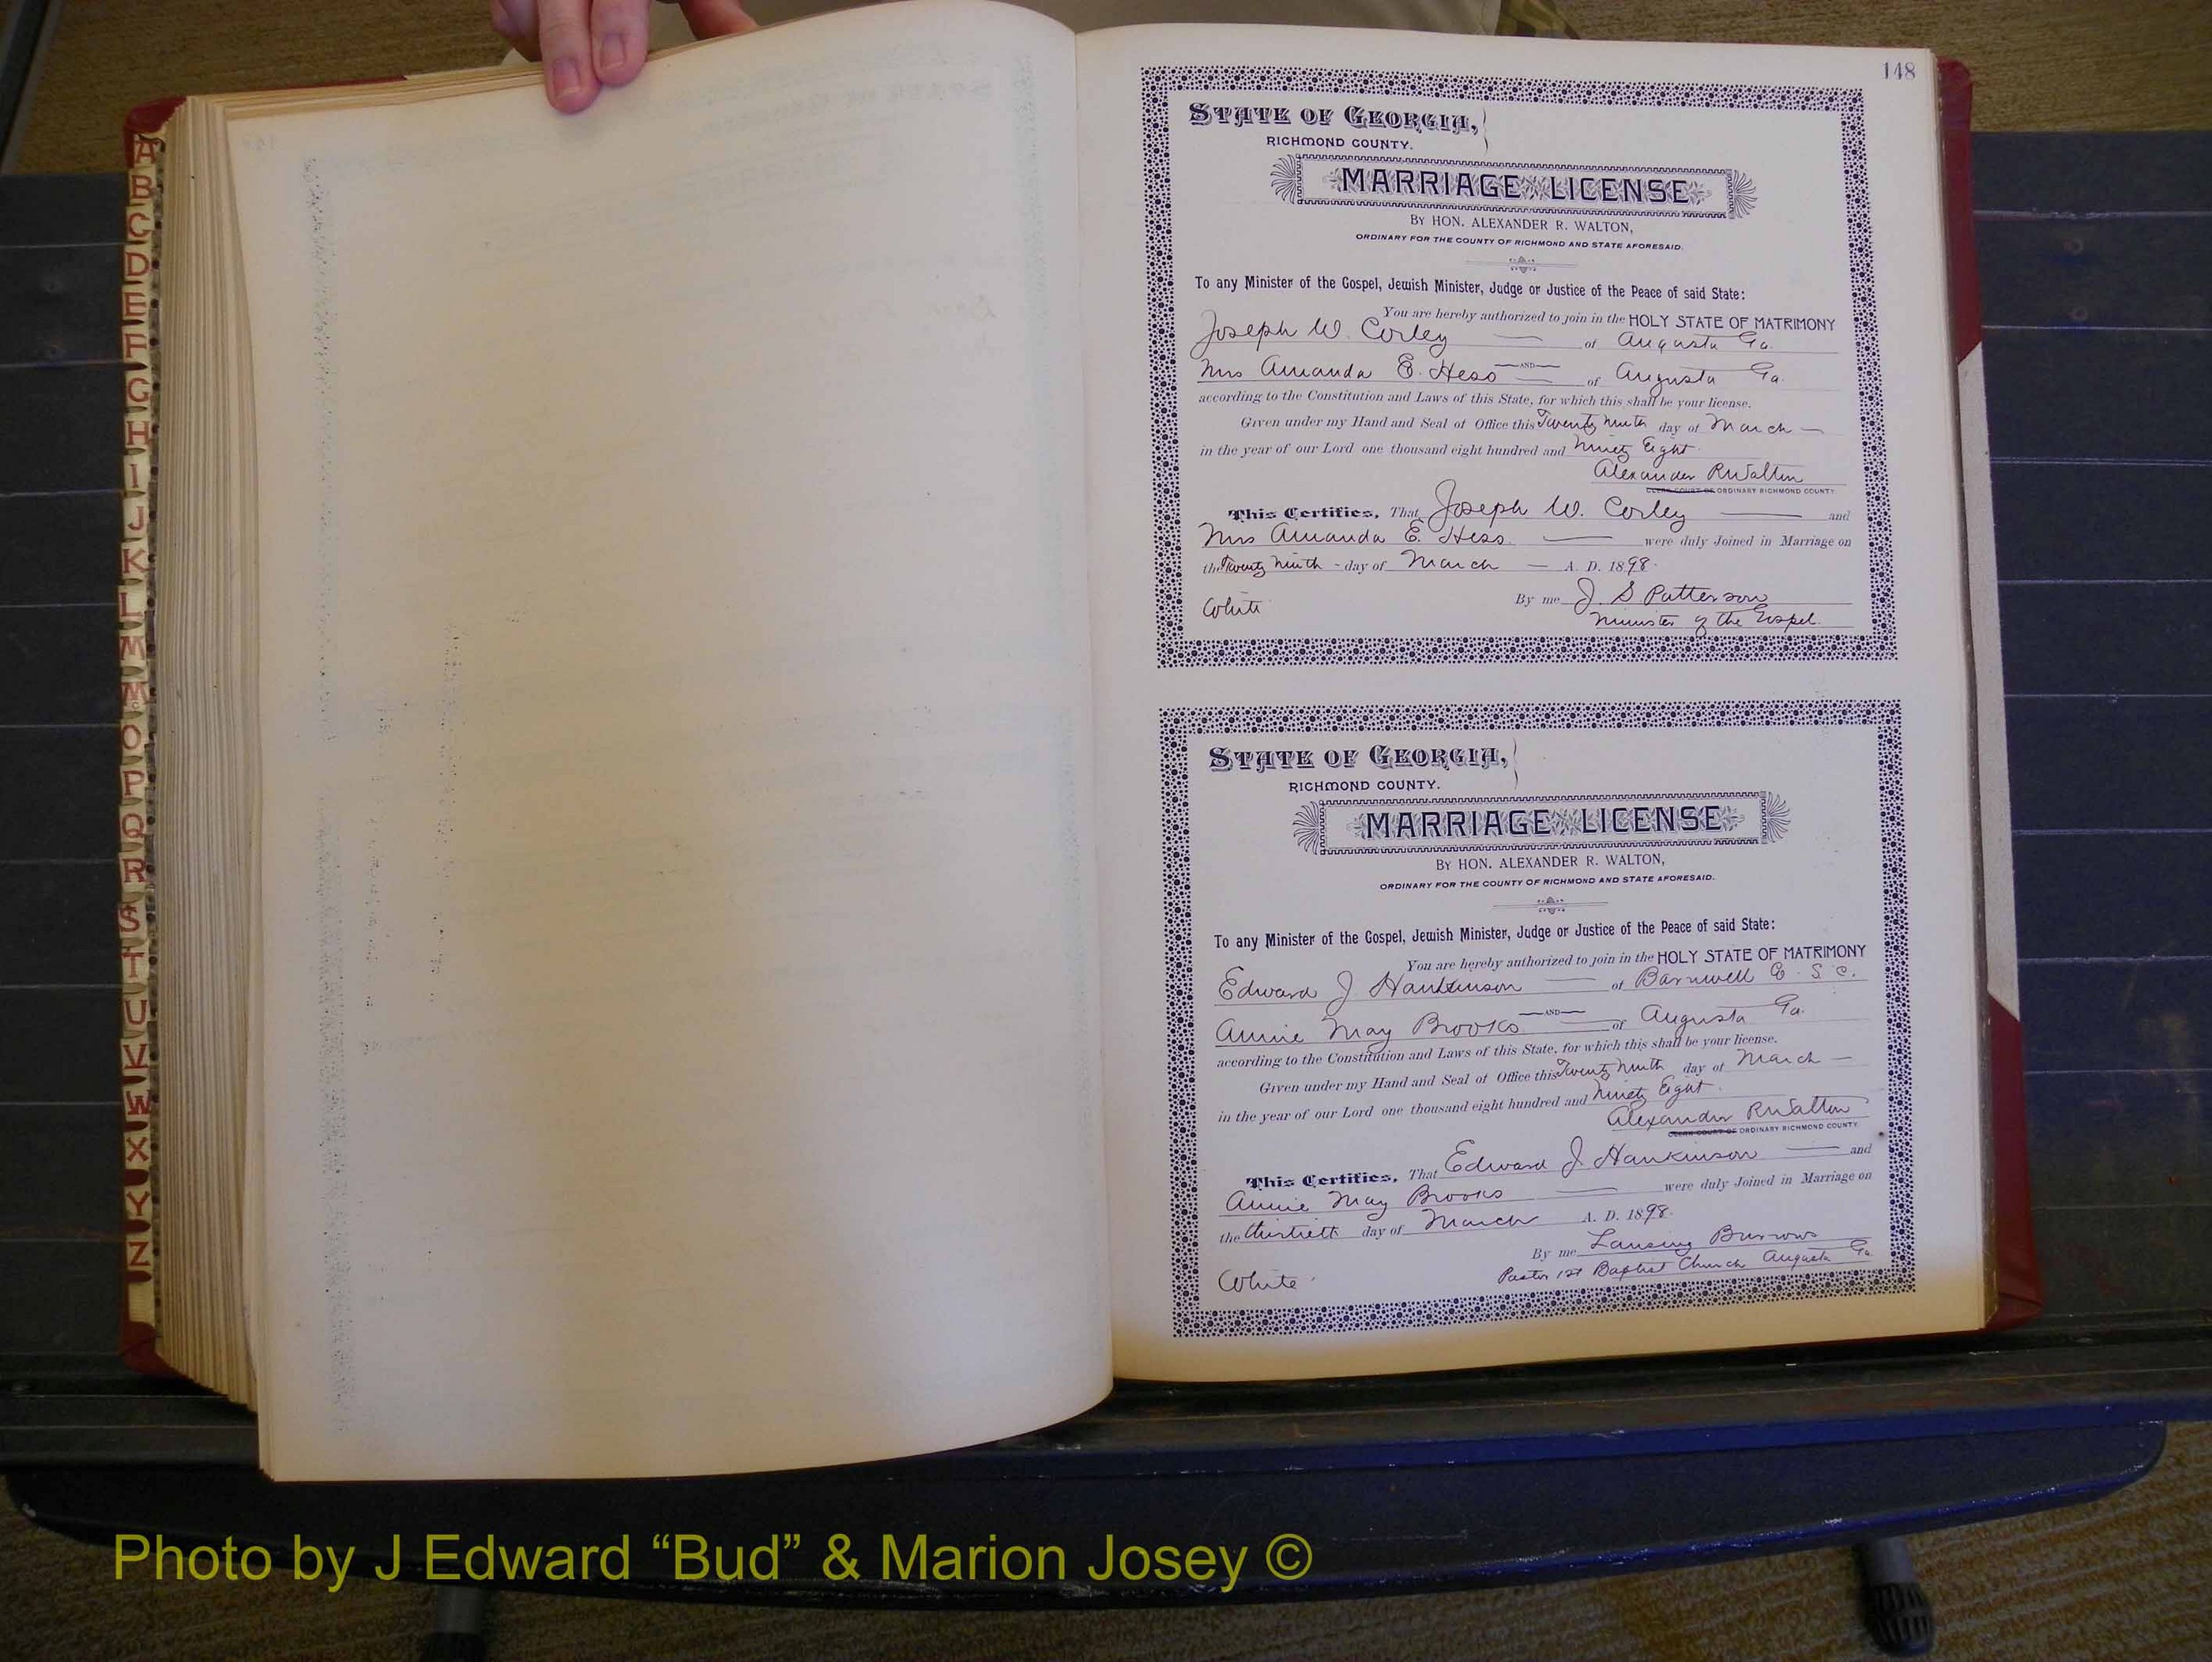 A
B
C
D
E
F
G
H
I
J
K
L
M
Mc
O
P
Q
R
S
T
U
V
W
X
Y
Z
148
STATE OF GEORGIA,
RICHMOND COUNTY.
MARRIAGE LICENSE
BY HON. ALEXANDER R. WALTON,
ORDINARY FOR THE COUNTY OF RICHMOND AND STATE AFORESAID.
To any Minister of the Gospel, Jewish Minister, Judge or Justice of the Peace of said State:
You are hereby authorized to join in the HOLY STATE OF MATRIMONY
Joseph W. Corley — of Augusta Ga.
—AND—
Mrs Amanda E. Hess — of Augusta Ga.
according to the Constitution and Laws of this State, for which this shall be your license.
Given under my Hand and Seal of Office this Twenty Ninth day of March —
in the year of our Lord one thousand eight hundred and Ninety Eight.
Alexander R Walton
CLERK COURT OF ORDINARY RICHMOND COUNTY
This Certifies, That Joseph W. Corley — and
Mrs Amanda E. Hess — were duly Joined in Marriage on
the Twenty Ninth - day of March — A. D. 1898.
By me J. S Patterson
White
Minister of the Gospel.
STATE OF GEORGIA,
RICHMOND COUNTY.
MARRIAGE LICENSE
BY HON. ALEXANDER R. WALTON,
ORDINARY FOR THE COUNTY OF RICHMOND AND STATE AFORESAID.
To any Minister of the Gospel, Jewish Minister, Judge or Justice of the Peace of said State:
You are hereby authorized to join in the HOLY STATE OF MATRIMONY
Edward J Hankinson — of Barnwell Co. S. C.
—AND—
Annie May Brooks — of Augusta Ga.
according to the Constitution and Laws of this State, for which this shall be your license.
Given under my Hand and Seal of Office this Twenty Ninth day of March —
in the year of our Lord one thousand eight hundred and Ninety Eight.
Alexander R Walton
CLERK COURT OF ORDINARY RICHMOND COUNTY
This Certifies, That Edward J. Hankinson — and
Annie May Brooks — were duly Joined in Marriage on
the thirtieth day of March A. D. 1898.
By me Lansing Burrows
Pastor 1st Baptist Church Augusta Ga.
White
Photo by J Edward “Bud” & Marion Josey ©